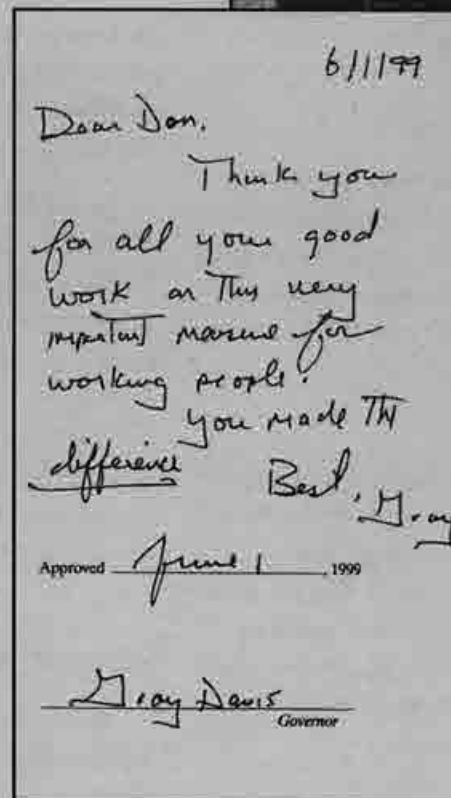 6/1/99
Dear Don,
Thank you
for all your good
work on this very
important measure for
working people.
You made the
difference
Best,
Gray
Approved June 1, 1999
Gray Davis
Governor